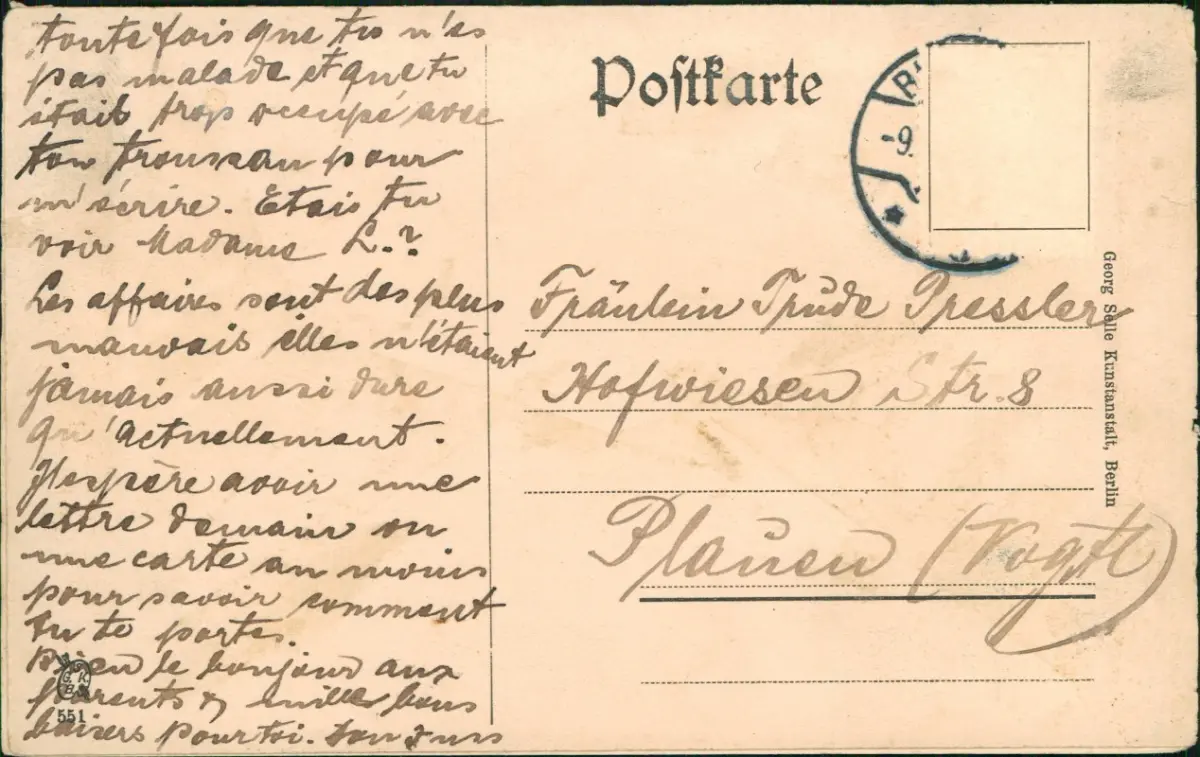 toutefois que tu n'es
pas malade et que tu
étais trop occupé avec
ton trousseau pour
m'écrire. Etais tu
voir Madame L.?
Les affaires sont des plus
mauvais elles n'étaient
jamais aussi dure
qu'actuellement.
J'espère avoir une
lettre demain ou
une carte au moins
pour savoir comment
tu te portes.
Bien le bonjour aux
parents & mille bons
baisers pour toi. ton
551
Postkarte
-9
Fräulein Trude Pressler
Hofwiesen Str. 8
Plauen (Vogtl)
Georg Selle Kunstanstalt, Berlin